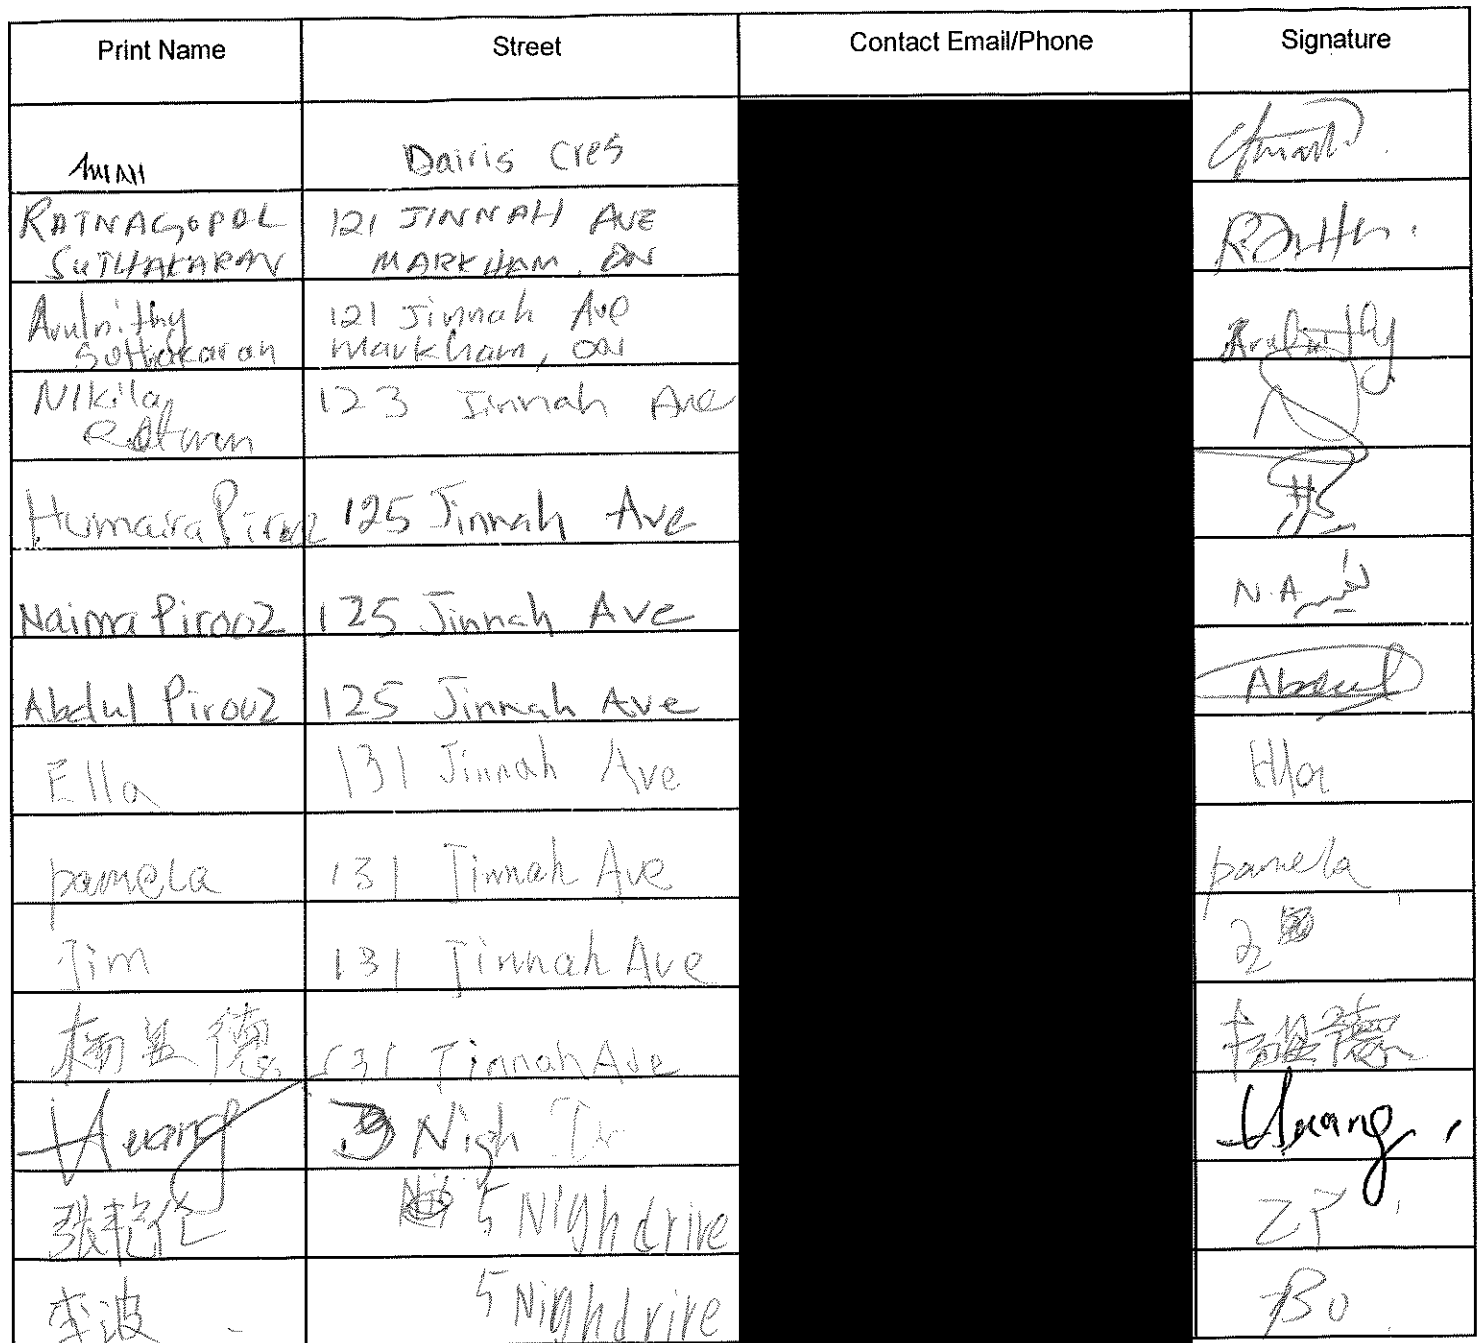 Print Name Street Contact Email/Phone Signature
Dairis Cres
RATNAGOPAL 121 JINNAH AVE
SUTHAKARAN MARKHAM, ON
Arulnithy 121 Jinnah Ave Arulnithy
Suthakaran Markham, ON
Nikila 123 Jinnah Ave
Humaira Pirooz 125 Jinnah Ave
Naima Pirooz 125 Jinnah Ave N.A
Abdul Pirooz 125 Jinnah Ave Abdul
Ella 131 Jinnah Ave Ella
pamela 131 Jinnah Ave pamela
Jim 131 Jinnah Ave
杨益德 131 Jinnah Ave 杨益德
Huang 3 Nigh Dr Huang
5 Nighdrive ZP
李波 5 Nighdrive Bo